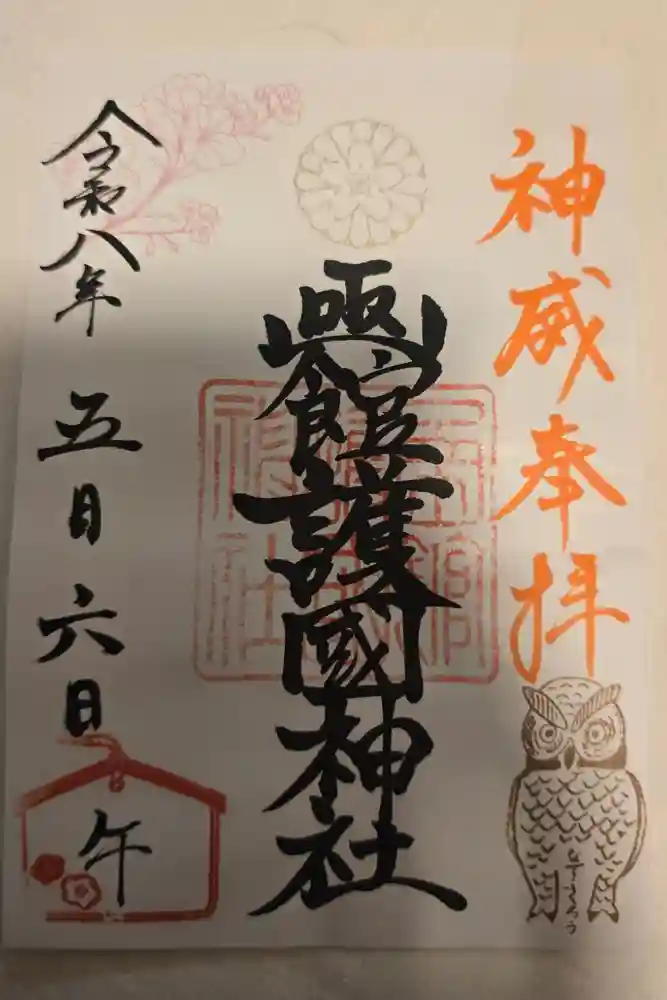 神威奉拝
なでふくろう
凾館護國神社
令和八年 五月六日
午